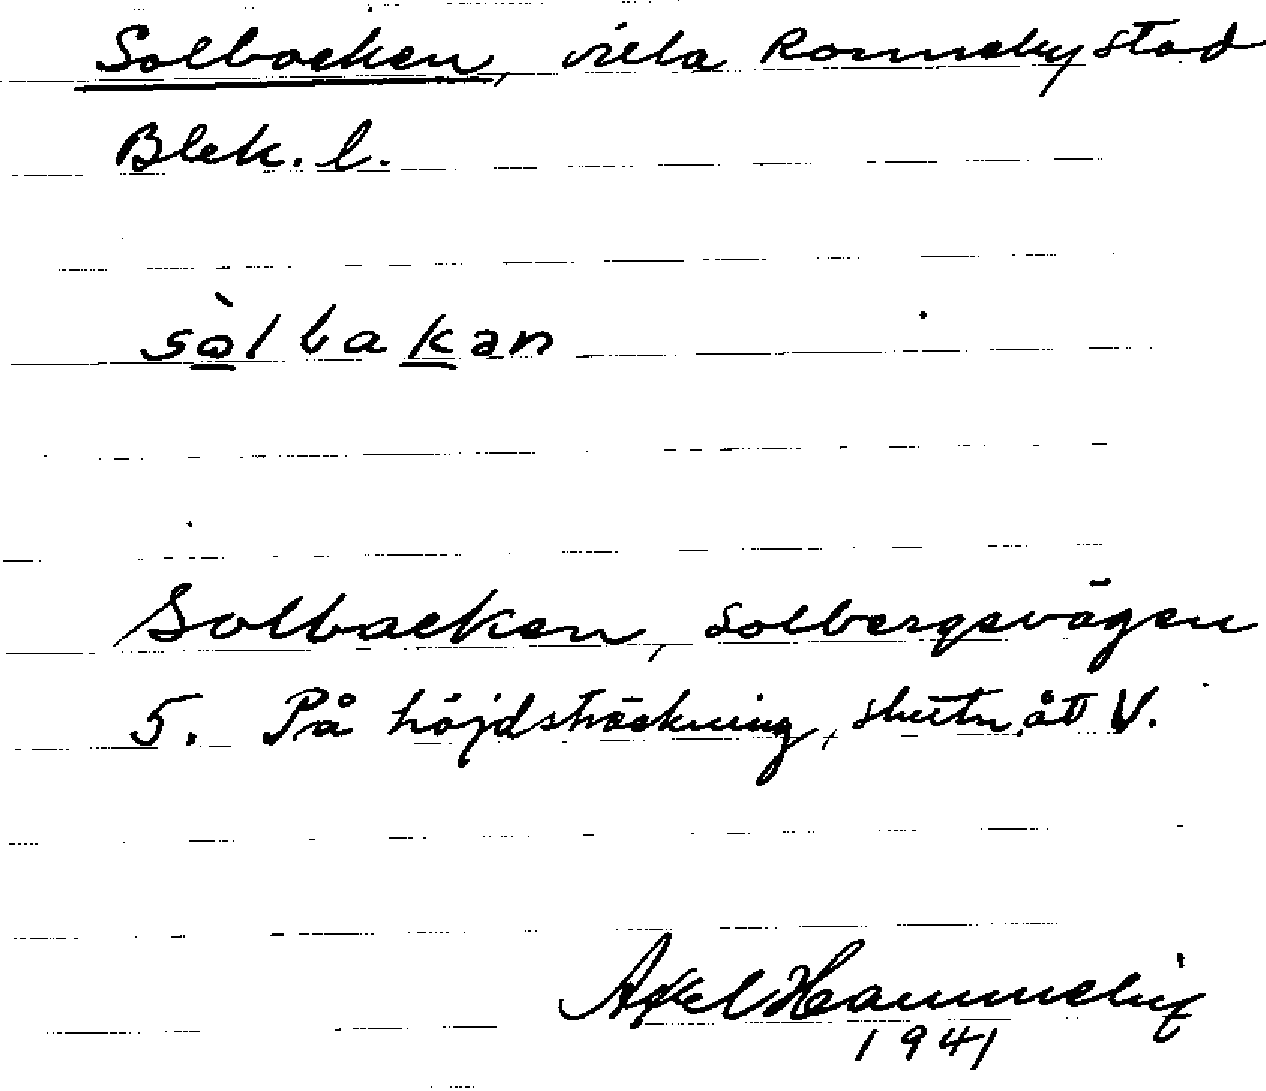 Solbacken, villa Ronneby stad
Blek. l.
sòlbakan
Solbacken, Solbergsvägen
5. På höjdsträckning, slutn. åt V.
Axel
1941